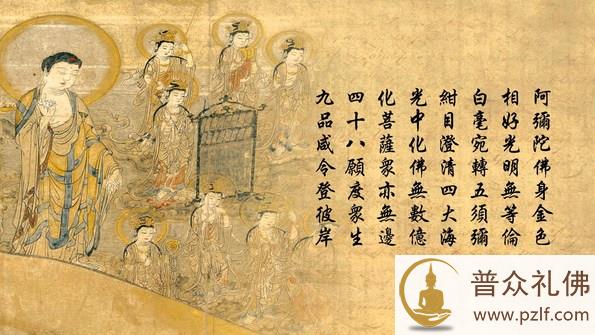 阿彌陀佛身金色
相好光明無等倫
白毫宛轉五須彌
紺目澄清四大海
光中化佛無數億
化菩薩眾亦無邊
四十八願度眾生
九品咸令登彼岸
普众礼佛
www.pzlf.com